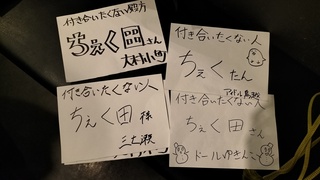 付き合いたくない親方
ちぇく田さん
大村小町
付き合いたくない人
ちぇくたん
アイドル鳥越
付き合いたくない人
ちぇく田様
三土瀬
付き合いたくない人
ちぇく田さん
ドールゆきんこ